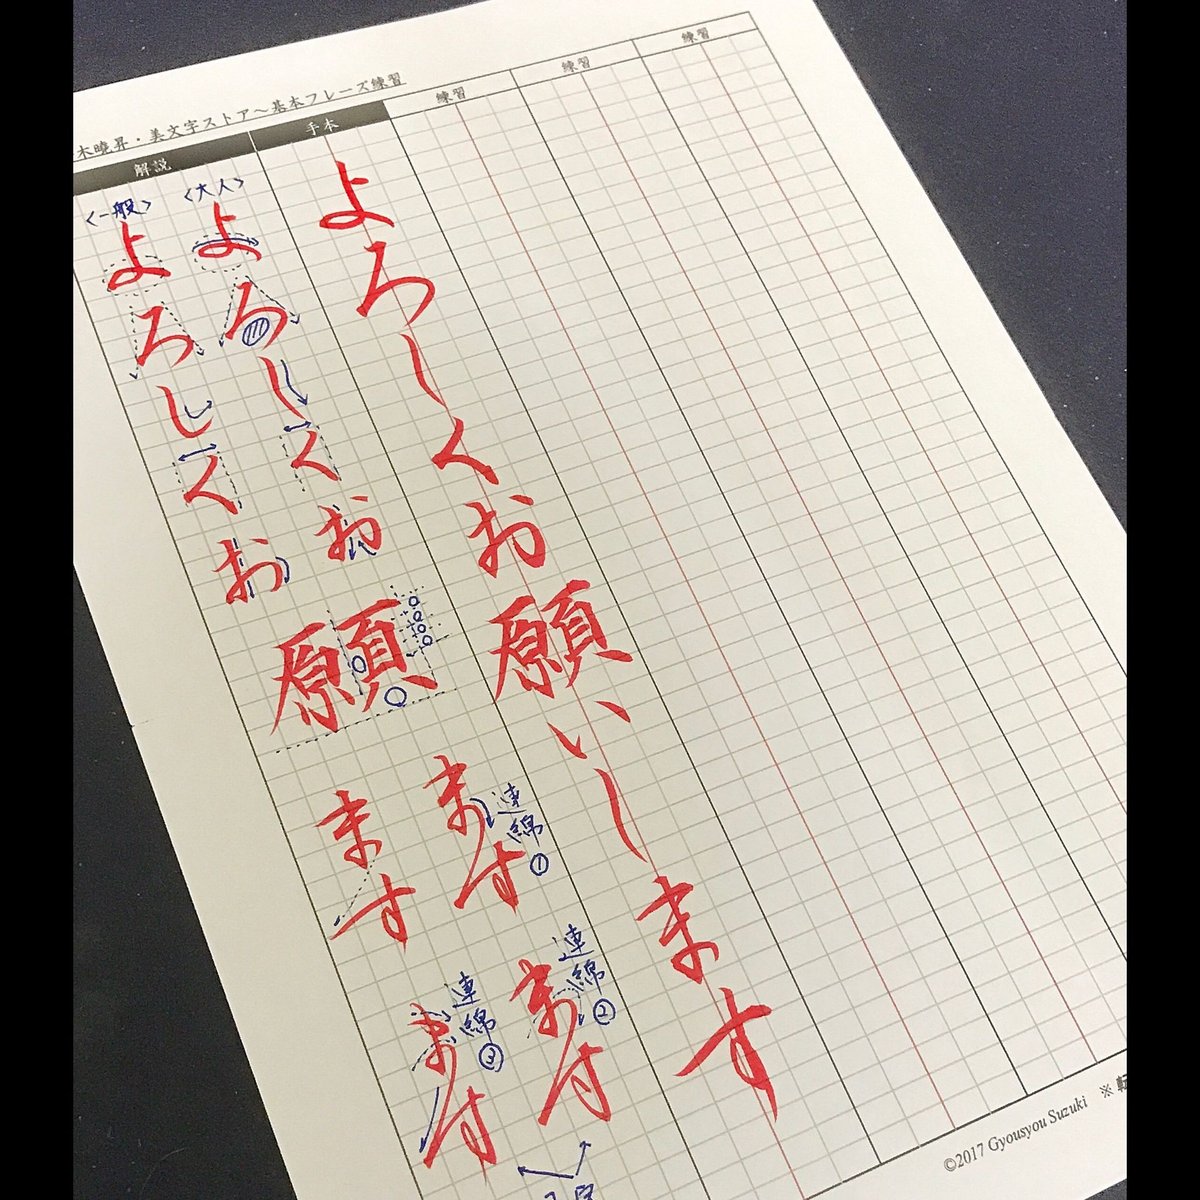 木曉昇・美文字ストア～基本フレーズ練習
解説
手本
練習
練習
練習
<一般>
<大人>
よろしくお願いします
よろしくお
よろしくお
願
ます
ます
連綿①
ます
連綿②
ます
連綿③
©2017 Gyousyou Suzuki
※